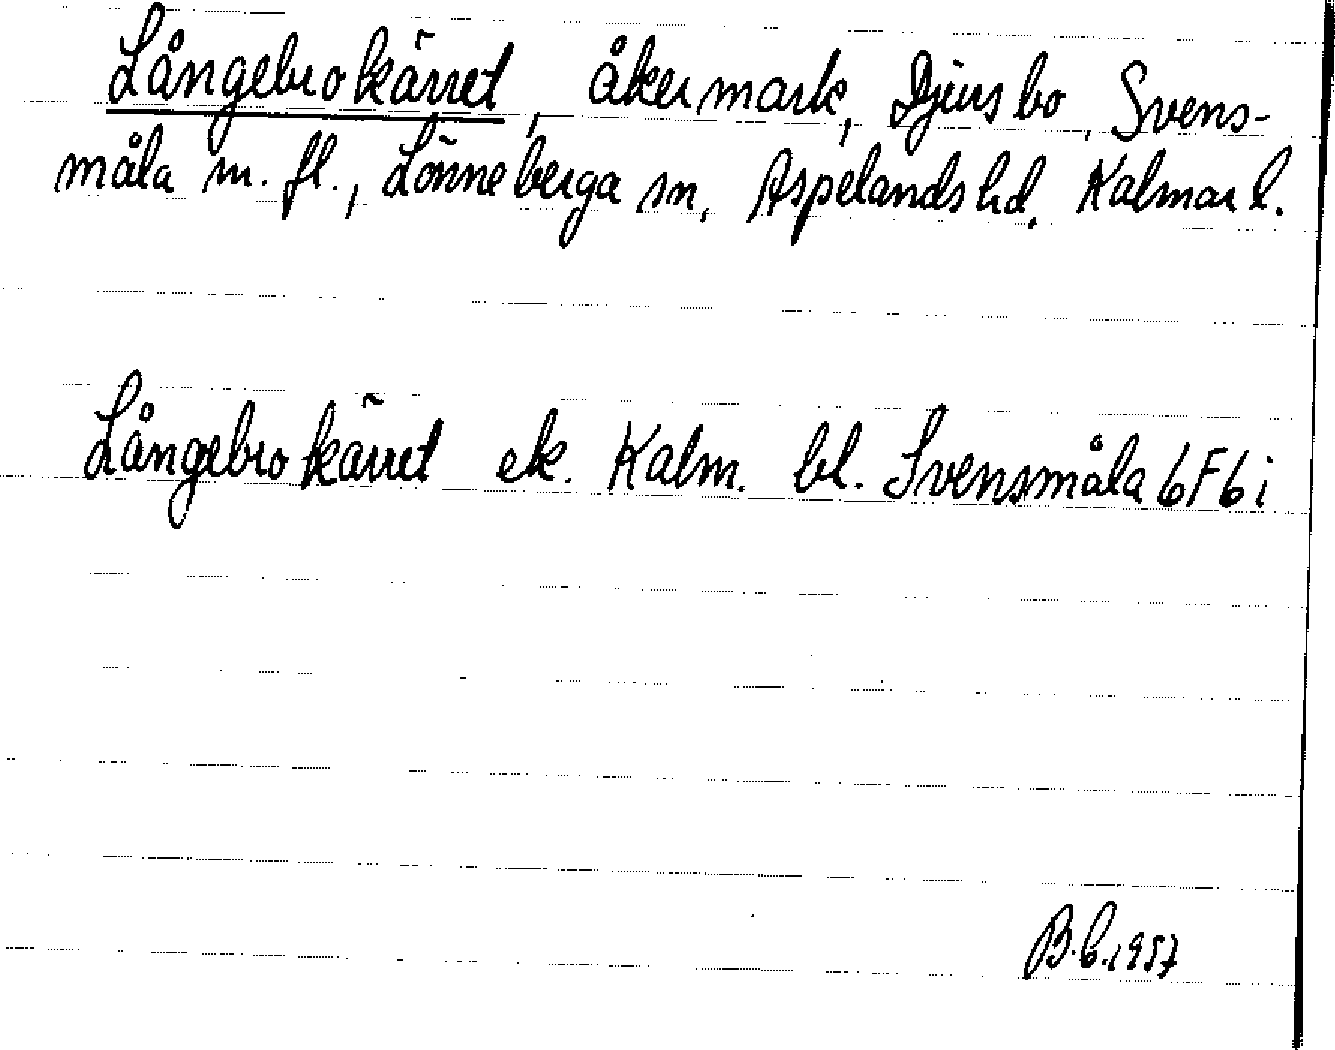 Långebrokärret, åkermark, Djursbo, Svens-
måla m. fl., Lönneberga sn, Aspelands hd. Kalmar l.
Långebrokärret ek. Kalm. bl. Svensmåla 6F6i
B.b.1957